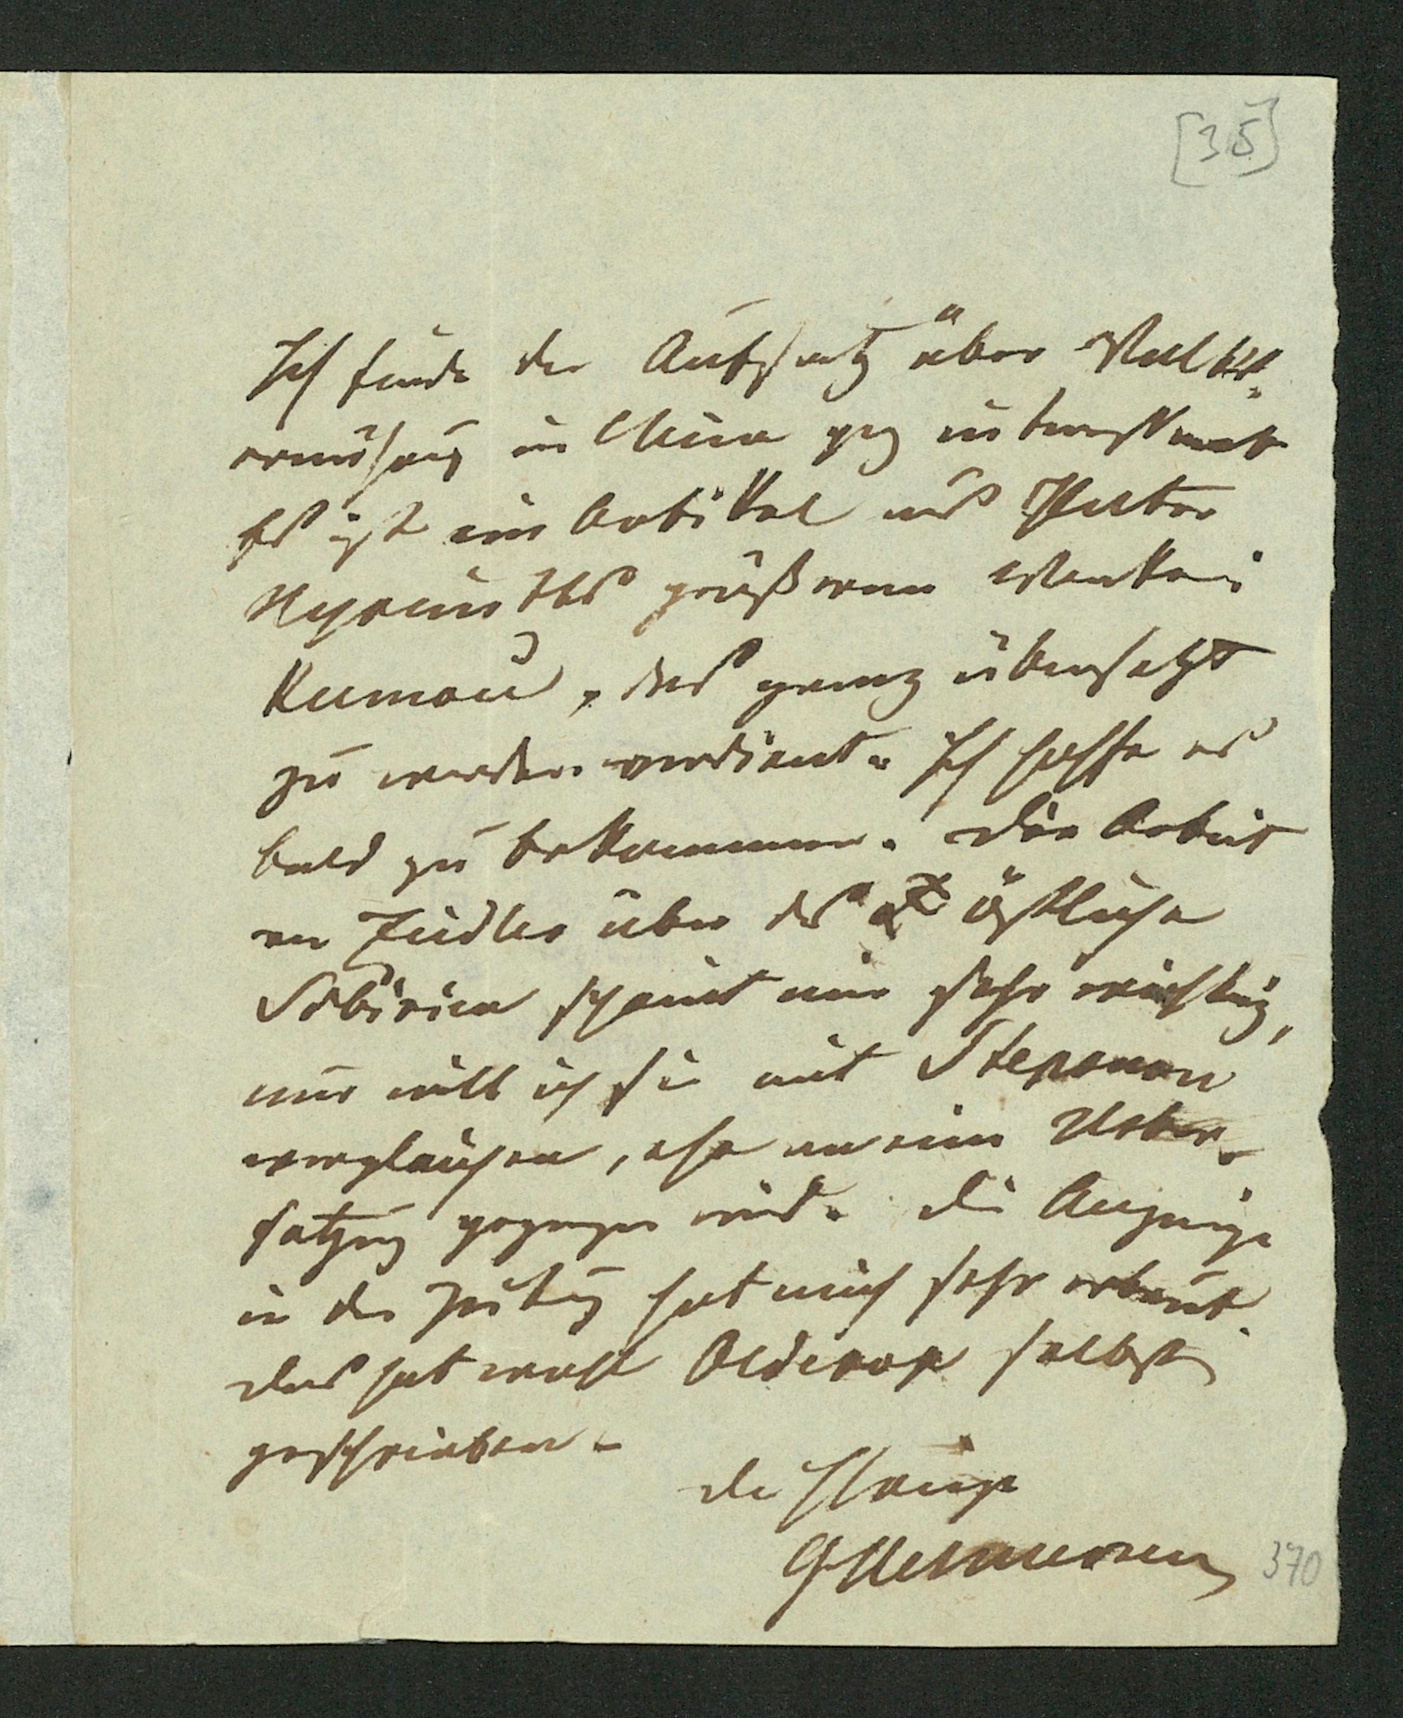 [35]
Ich finde den Aufsatz über Volks-
ernährung in China ganz interessant
Es ist ein Artikel aus Pater
Hyacinths größerem Werk
Китай, das ganz übersetzt
zu werden verdient. Ich hoffe es
bald zu bekommen. Die Arbeit
von über das östliche
Sibirien scheint mir sehr wichtig,
nur will ich sie mit Stepanow
vergleichen, ehe an eine Ueber-
setzung gegangen wird. Die Anzeige
in der Zeitung hat mich sehr erbaut.
Das hat wohl Oldekop selbst
geschrieben.
Der Ihrige
GHelmersen
370